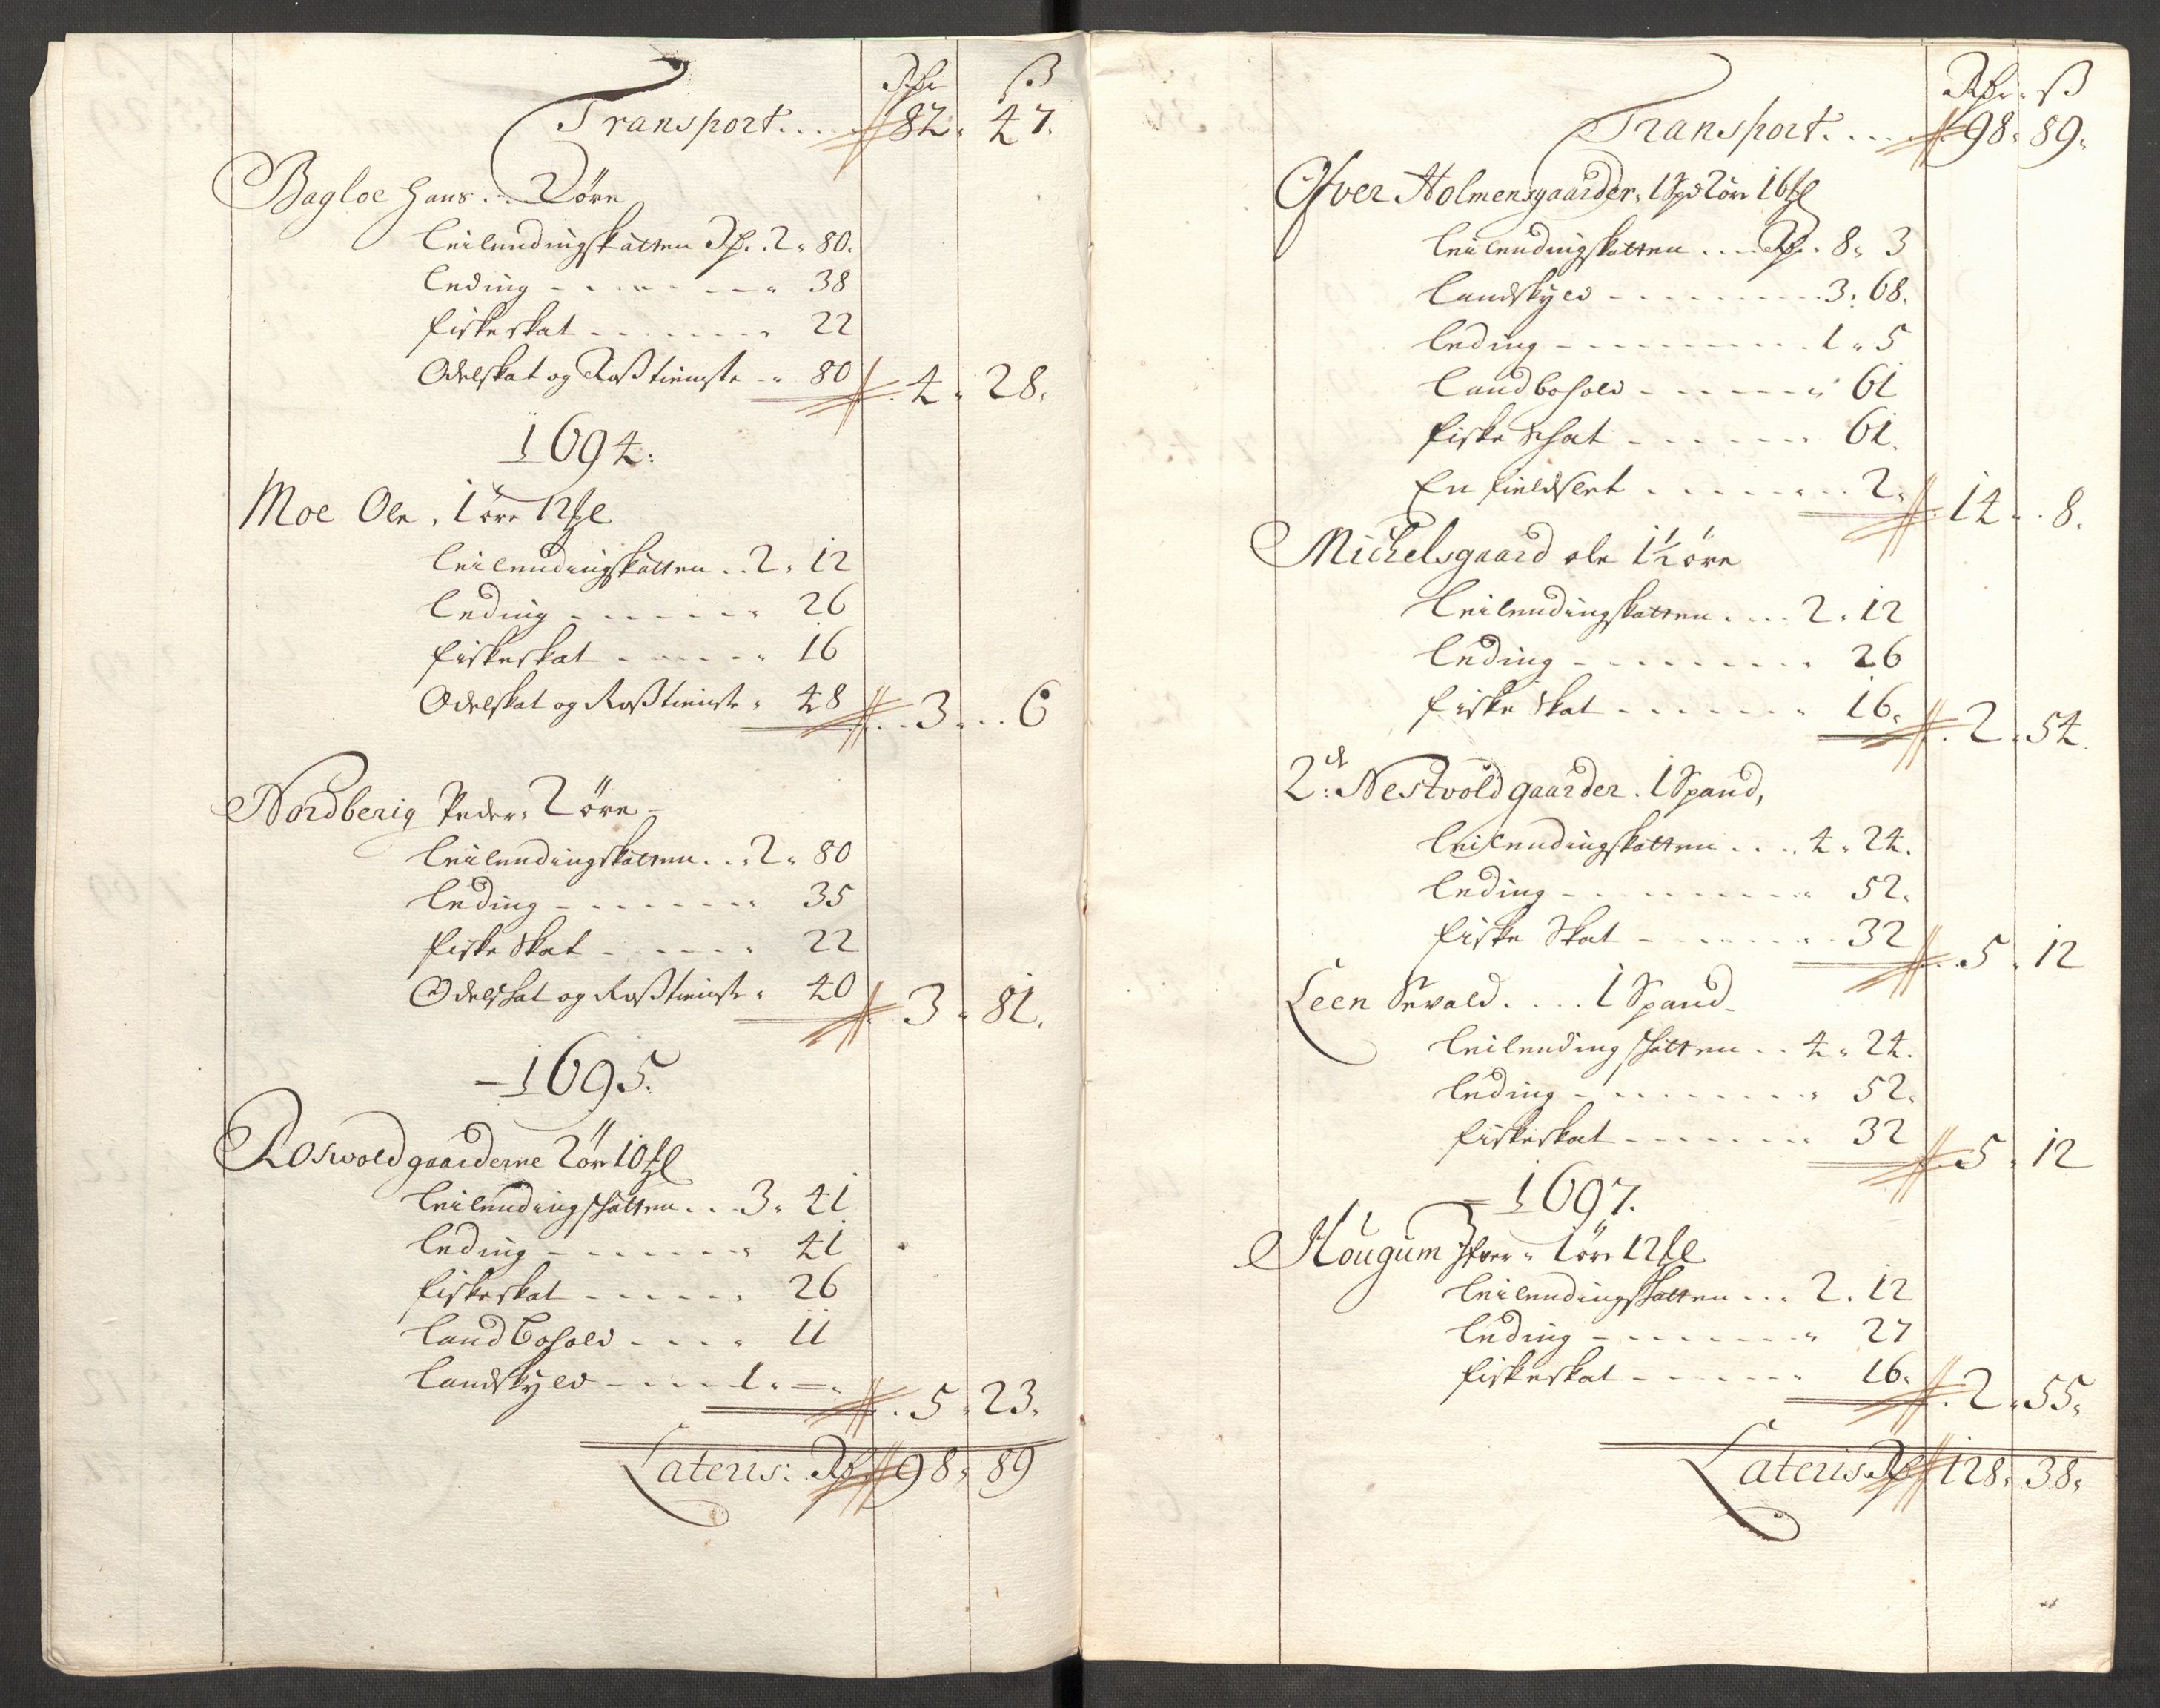 Rdr ß
Transport.... 82. 47.
Bagloe Hans... 2 öre
Leilendingskatten Rd. 2. 80.
Leding - - - - - 38
Fiskeskat - - - - 22
Odelskat og Roßtieniste - 80 4. 28.
1694.
Moe Ole, 1 öre 12 ℔
Leilendingskatten.. 2. 12
Leding - - - - - 26
Fiskeskat - - - - 16
Odelskat og Roßtieniste. 48 3... 6
Nordberig Peder. 2 öre -
Leilendingskatten... 2. 80
Leding - - - - - 35
Fiske Skat - - - - 22
Odelskat og Roßtieniste. 40 3. 81.
- 1695.
Roswold gaarderne 2 öre 10 ℔
Leilendingskatten... 3. 41
Leding - - - - - 41
Fiskeskat - - - - 26
Landbohold - - - - 11
Landskyld - - - - 1. =.
5. 23.
Lateris: Rd 98. 89
Rdr. ß
Transport.... 98. 89.
Øfver Holmensgaarder. 1 Spd 2 öre 16 ℔
Leilendingskatten.... Rd. 8. 3
Landskyld - - - - - 3. 68.
Leding - - - - - 1. 5
Landbohold - - - - 61
Fiske Schat - - - - 61.
En - - - - 2. 14... 8.
Michelsgaard ole 1½ öre
Leilendingskatten.... 2. 12
Leding - - - - - 26
Fiske Skat - - - - 16. 2. 54.
2de: Nestvold gaarder. 1 Spand,
Leilendingskatten.... 4. 24.
Leding - - - - - 52.
Fiske Skat - - - - 32 5. 12
Leen Sevald.... 1 Spand -
Leilendingskatten... 4. 24.
Leding - - - - - 52.
Fiskeskat - - - - 32 5. 12
- 1697.
Hougum Ifver. 1 öre 12 ℔
Leilendingskatten... 2. 12
Leding - - - - - 27
Fiskeskat - - - - 16. 2. 55.
Lateris Rd 128. 38.